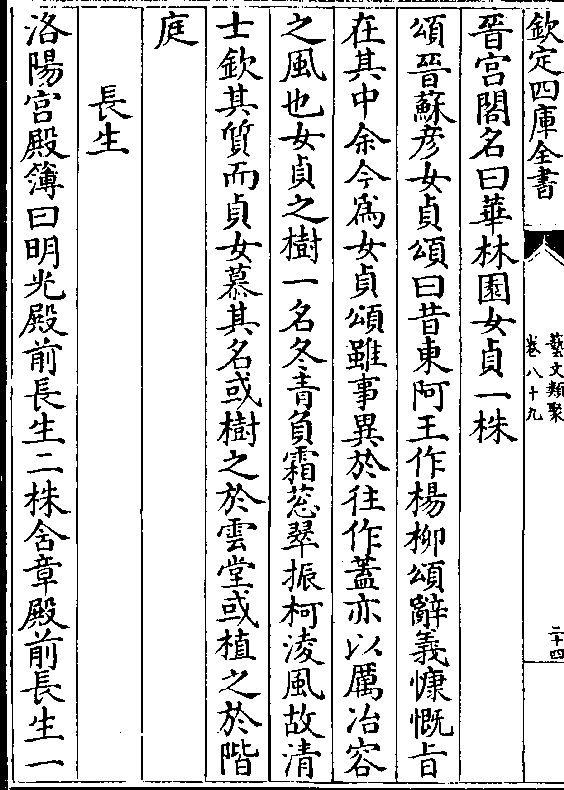 欽定四庫全書
藝文類聚
卷八十九
二十四
晉宮閣名曰華林園女貞一株
頌晉蘇彥女貞頌曰昔東阿王作楊柳頌辭義慷慨旨
在其中余今為女貞頌雖事異於往作蓋亦以厲冶容
之風也女貞之樹一名冬青負霜葱翠振柯淩風故清
士欽其質而貞女慕其名或樹之於雲堂或植之於階
庭
長生
洛陽宮殿簿曰明光殿前長生二株含章殿前長生一